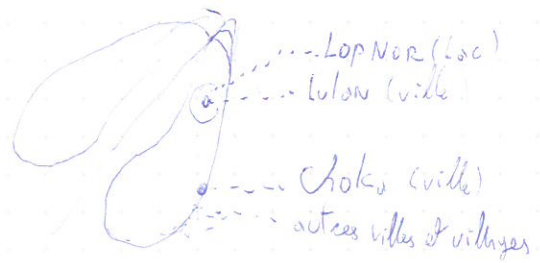 LOPNOR (Lac)
Lulan (ville)
Choka (ville)
autres villes et villages